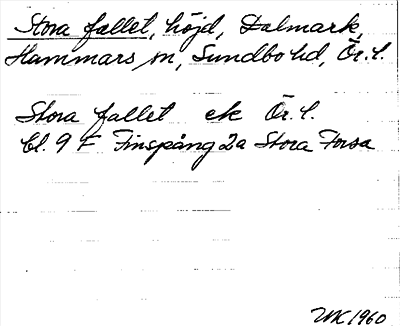 Stora fallet, höjd, Dalmark,
Hammars sn, Sundbo hd, Ör. l.
Stora fallet ek Ör. l.
Bl. 9 F Finspång 2a Stora Forsa
WK 1960